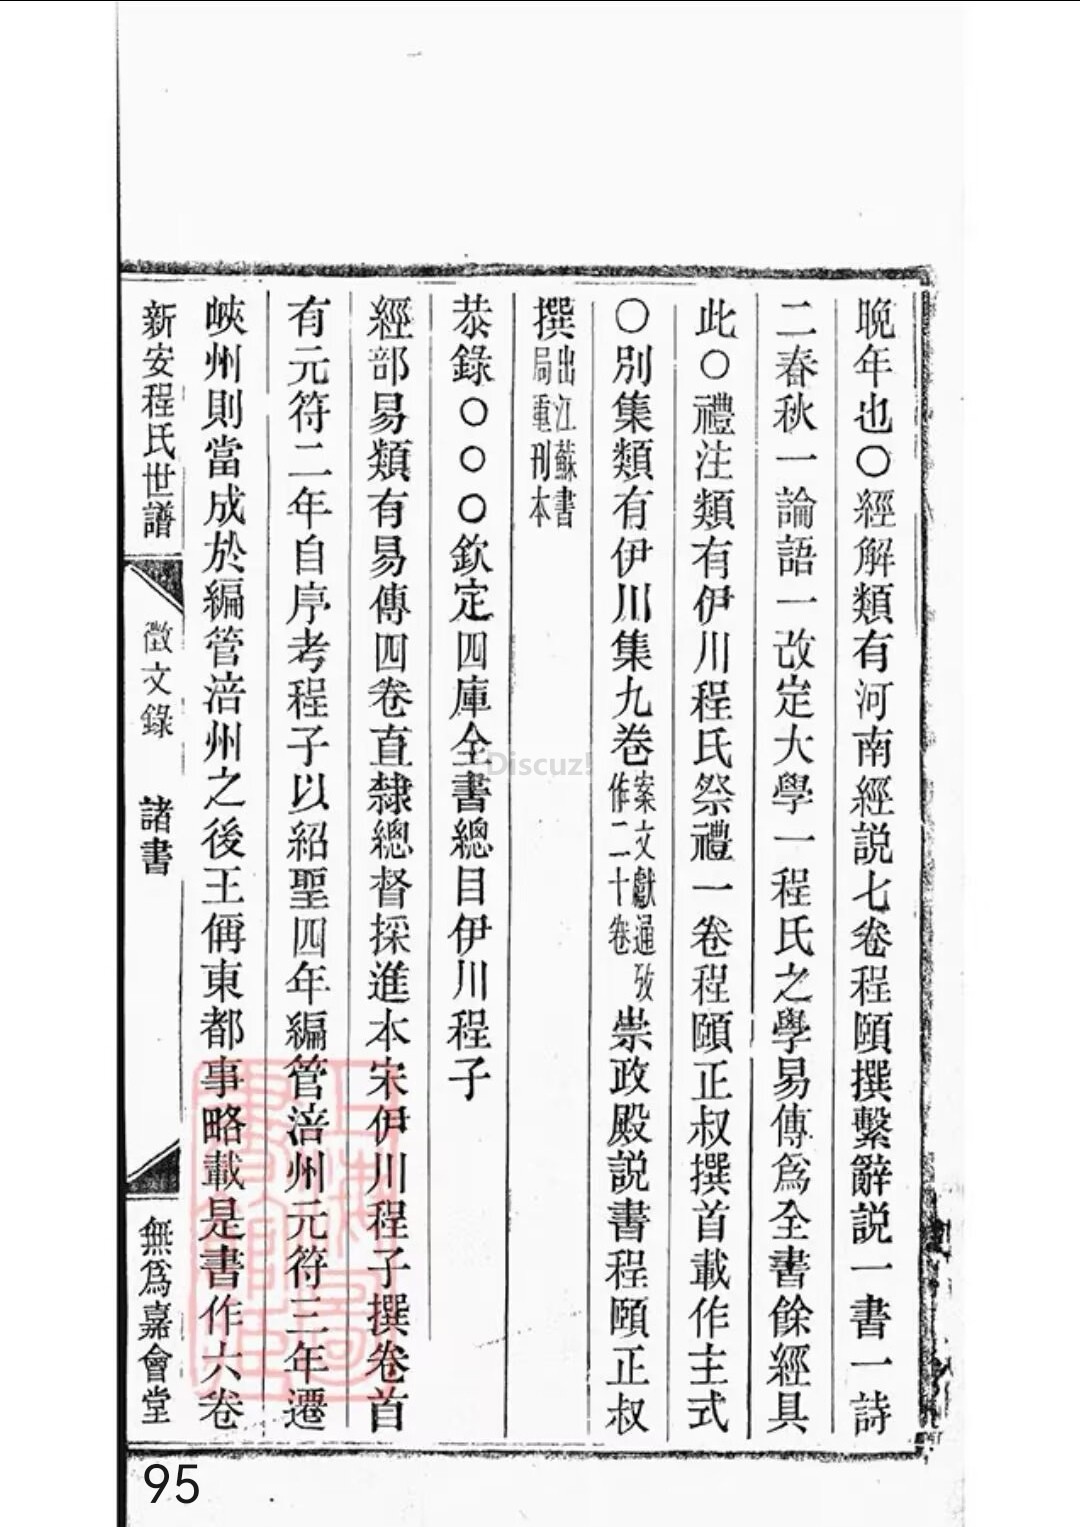 晩年也○經解類有河南經説七卷程頤撰繫辭説一書一詩
二春秋一論語一改定大學一程氏之學易傳爲全書餘經具
此○禮注類有伊川程氏祭禮一卷程頤正叔撰首載作主式
○別集類有伊川集九卷案文獻通攷作二十卷崇政殿説書程頤正叔
撰出江蘇書局重刊本
恭錄○○○欽定四庫全書總目伊川程子
經部易類有易傳四卷直隸總督採進本宋伊川程子撰卷首
有元符二年自序考程子以紹聖四年編管涪州元符三年遷
峽州則當成於編管涪州之後王偁東都事略載是書作六卷
新安程氏世譜
徵文錄
諸書
無爲嘉會堂
Discuz!
95